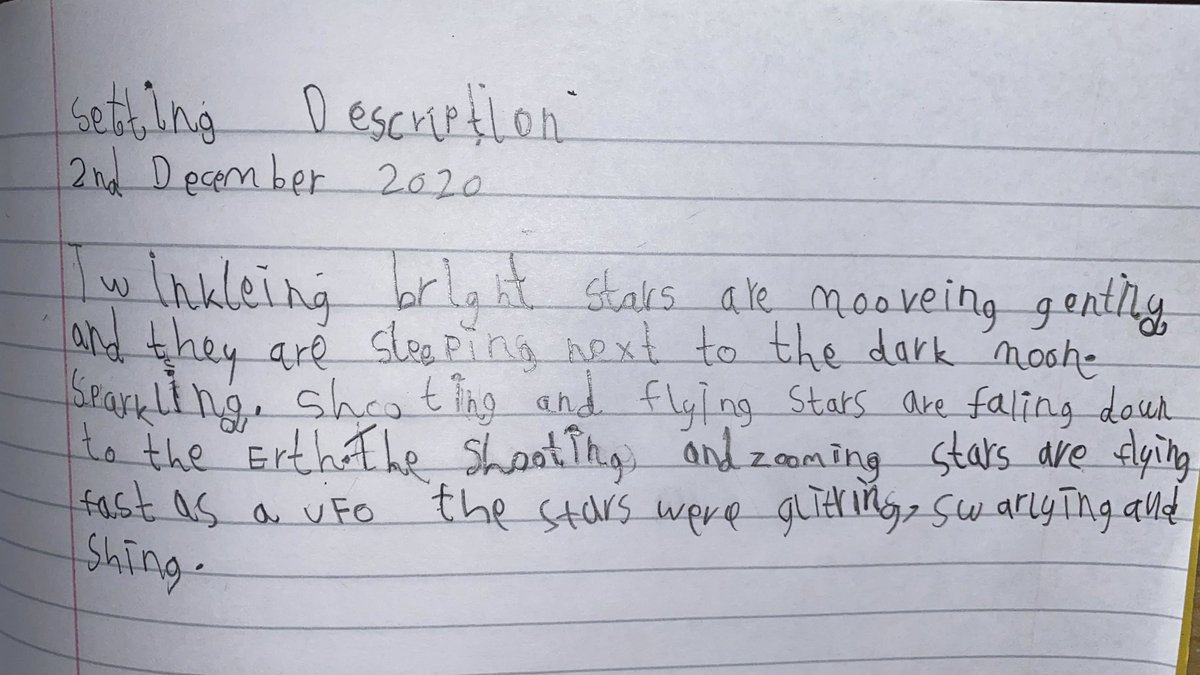 setting Description
2nd December 2020
Twinkleing bright stars are mooveing gentlly
and they are sleeping next to the dark moon.
Sparkling, shooting and flying stars are faling down
to the Erth. The shooting, and zooming stars are flying
fast as a UFO the stars were glitring, swarlying and
shing.